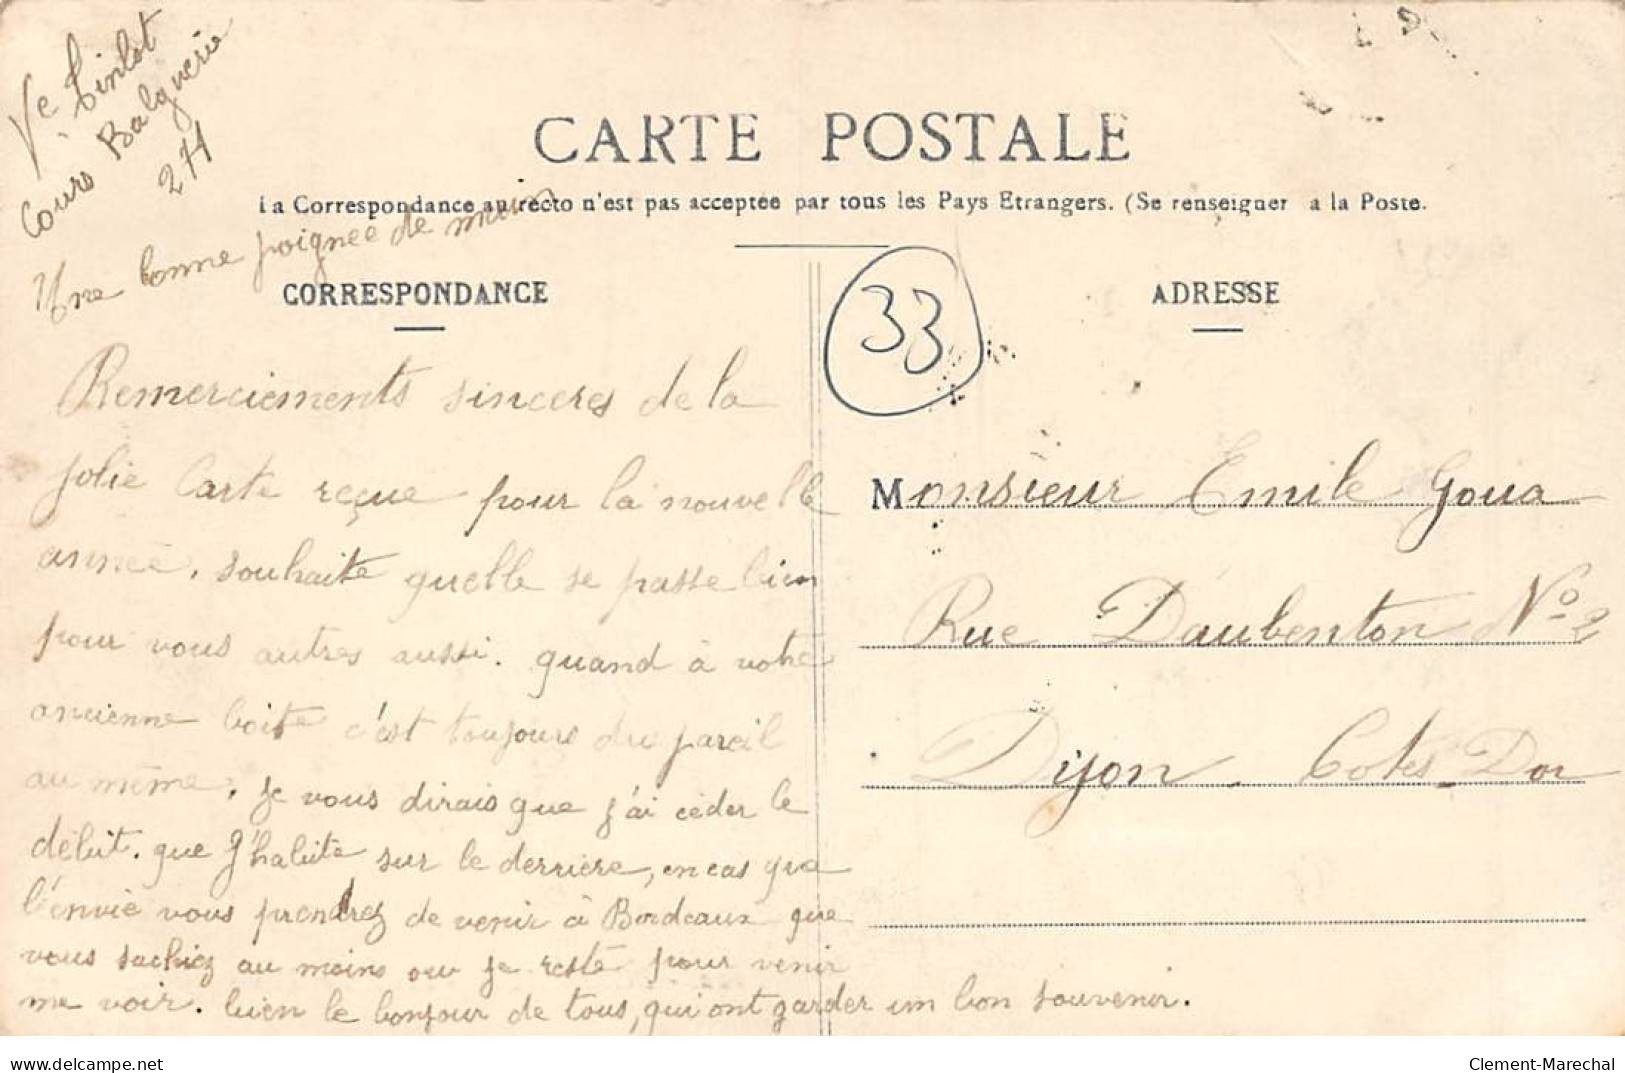 Ve Tinlot
Cours Balguerie
274
CARTE POSTALE
La Correspondance au recto n'est pas acceptée par tous les Pays Etrangers. (Se renseigner a la Poste.
Une bonne poignee de
CORRESPONDANCE
ADRESSE
33
Remerciements sinceres de la
jolie Carte reçue pour la nouvelle
année, souhaite quelle se passe bien
pour vous autres aussi. quand à votre
ancienne boite c'est toujours du pareil
au même, je vous dirais que j'ai céder le
débit. que J'habite sur le derrière, en cas que
l'envie vous prendrez de venir à Bordeaux que
vous sachiez au moins ou je reste pour venir
me voir. bien le bonjour de tous, qui ont garder un bon souvenir.
Monsieur Emile Goua
Rue Daubenton No 2
Dijon Cotes Dor
delcampe.net
Clement-Marechal